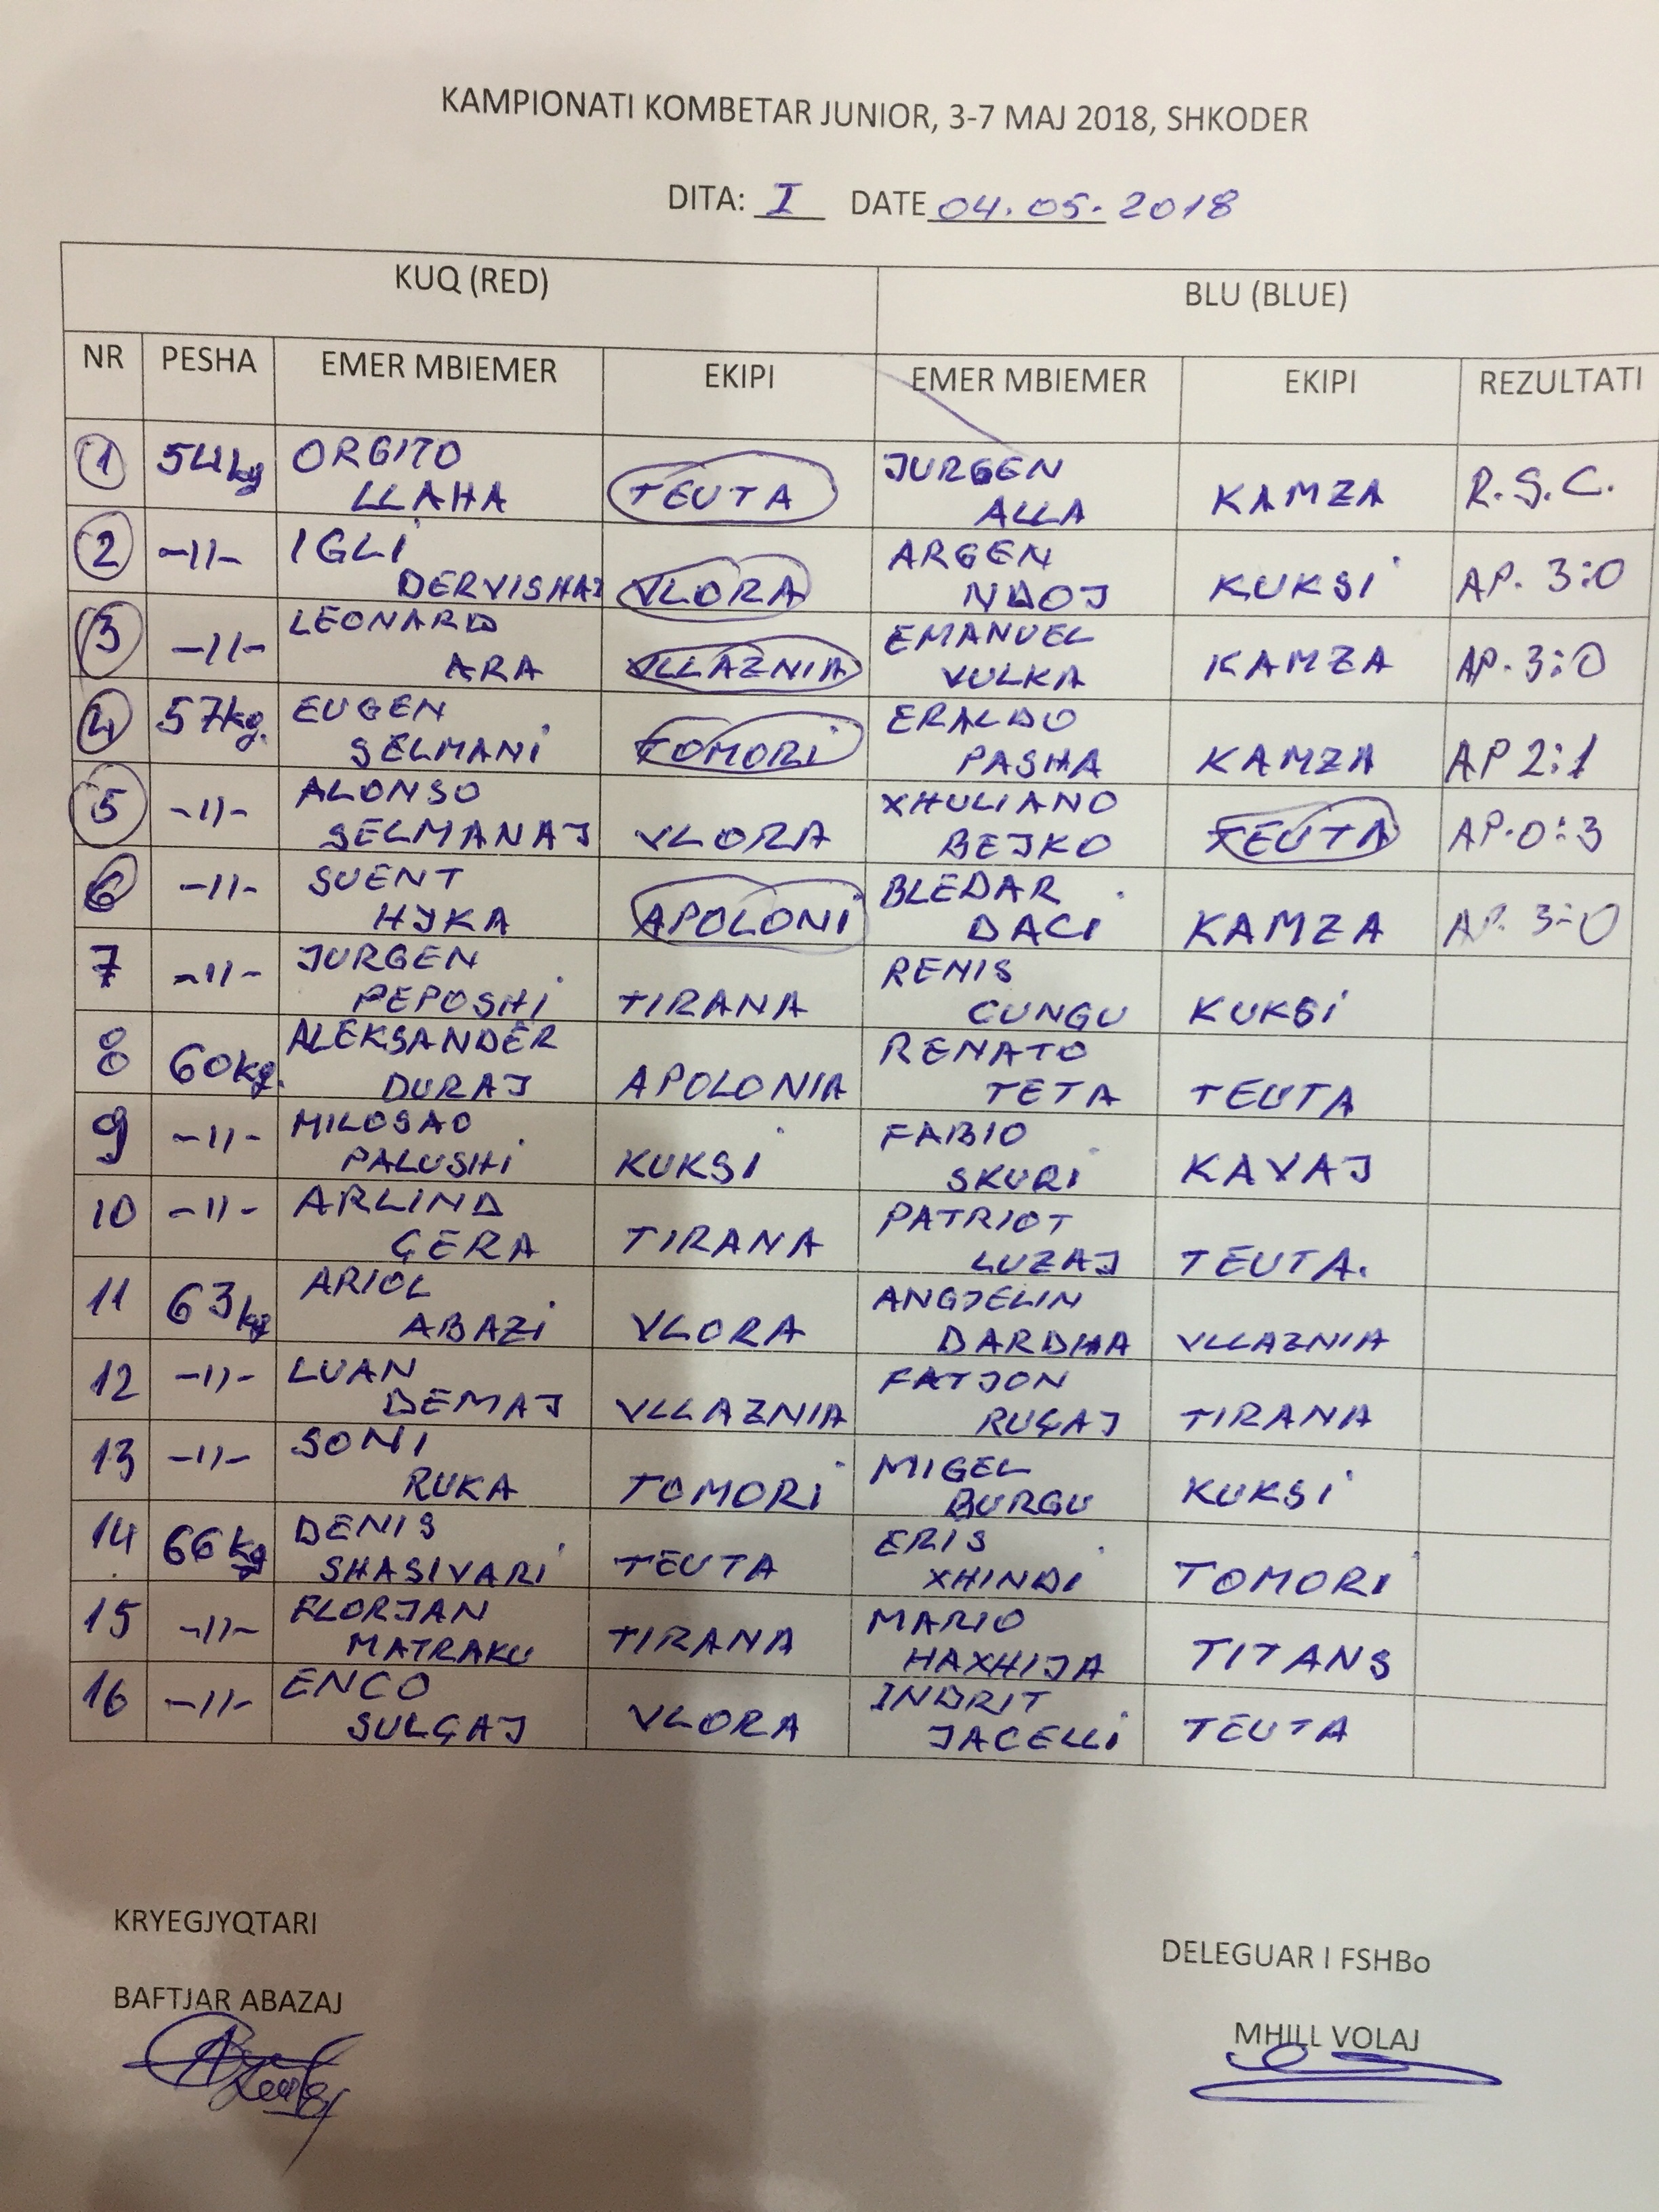 KAMPIONATI KOMBETAR JUNIOR, 3-7 MAJ 2018, SHKODER
DITA: I DATE 04.05.2018
KUQ (RED) BLU (BLUE)
NR PESHA EMER MBIEMER EKIPI EMER MBIEMER EKIPI REZULTATI
1 54kg ORGITO LLAHA TEUTA JURGEN ALLA KAMZA R.S.C.
2 -11- IGLI DERVISHAJ VLORA ARGEN NDOJ KUKSI AP. 3:0
3 -11- LEONARD ARA VLLAZNIA EMANUEL VULKA KAMZA AP. 3:0
4 57kg. EUGEN SELMANI TOMORI ERALDO PASHA KAMZA AP 2:1
5 -11- ALONSO SELMANAJ VLORA XHULIANO BEJKO TEUTA AP. 0:3
6 -11- SUENT HYKA APOLONI BLEDAR DACI KAMZA AP. 3-0
7 -11- JURGEN PEPOSHI TIRANA RENIS CUNGU KUKSI
8 60kg. ALEKSANDER DURAJ APOLONIA RENATO TETA TEUTA
9 -11- MILOSAO PALUSHI KUKSI FABIO SKURI KAVAJ
10 -11- ARLIND ÇERA TIRANA PATRIOT LUZAJ TEUTA.
11 63kg ARIOL ABAZI VLORA ANGJELIN DARDHA VLLAZNIA
12 -11- LUAN DEMAJ VLLAZNIA FATJON RUÇAJ TIRANA
13 -11- SONI RUKA TOMORI MIGEL BURGU KUKSI
14 66kg DENIS SHASIVARI TEUTA ERIS XHINDI TOMORI
15 -11- FLORJAN MATRAKU TIRANA MARIO HAXHIJA TITANS
16 -11- ENCO SULÇAJ VLORA INDRIT JACELLI TEUTA
KRYEGJYQTARI
DELEGUAR I FSHBo
BAFTJAR ABAZAJ
MHILL VOLAJ